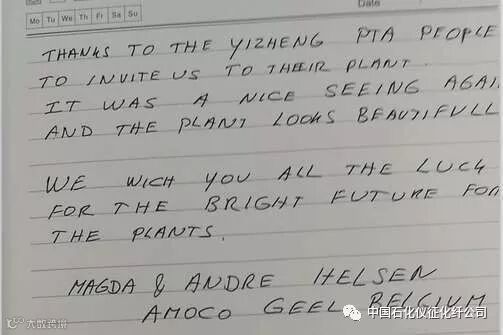 Mo Tu We Th Fr Sa Su
Date
THANKS TO THE YIZHENG PTA PEOPLE
TO INVITE US TO THEIR PLANT.
IT WAS A NICE SEEING AGAI
AND THE PLANT LOOKS BEAUTIFULL
WE WICH YOU ALL THE LUCK
FOR THE BRIGHT FUTURE FOR
THE PLANTS.
MAGDA & ANDRE HELSEN
AMOCO GEEL BELGIUM
大数跨境
中国石化仪征化纤公司